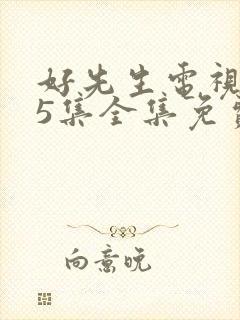 好先生電視
5集全集免費
向意晚